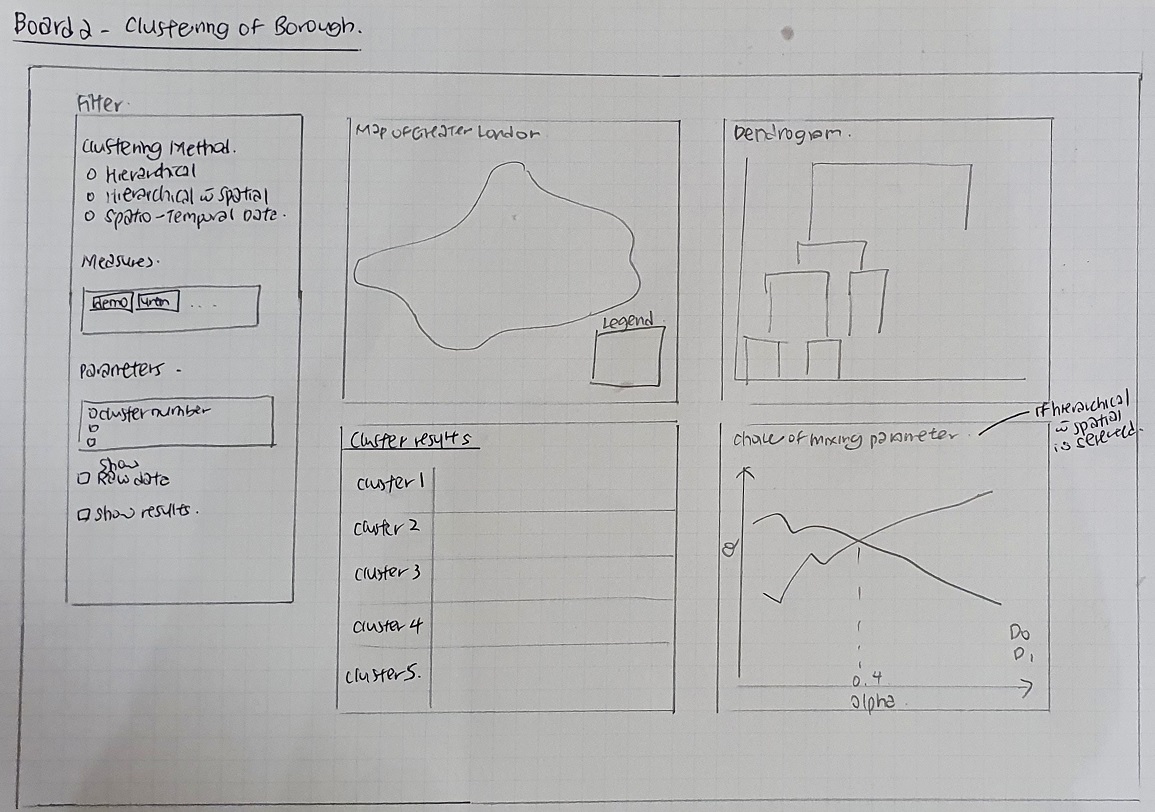 Board 2 - Clustering of Borough.
Filter.
Clustering Method.
Hierarchical
Hierarchical w̄ spatial
Spatio-Temporal Data.
Measures.
demo ...
Parameters -
cluster number
Show
Raw data
Show results.
Map of Greater London
Legend
Dendrogram.
Cluster results
Cluster 1
Cluster 2
Cluster 3
Cluster 4
Cluster 5.
Choice of mixing parameter
If hierarchical
w̄ spatial
is selected.
Q
D0
D1
0.4
alpha